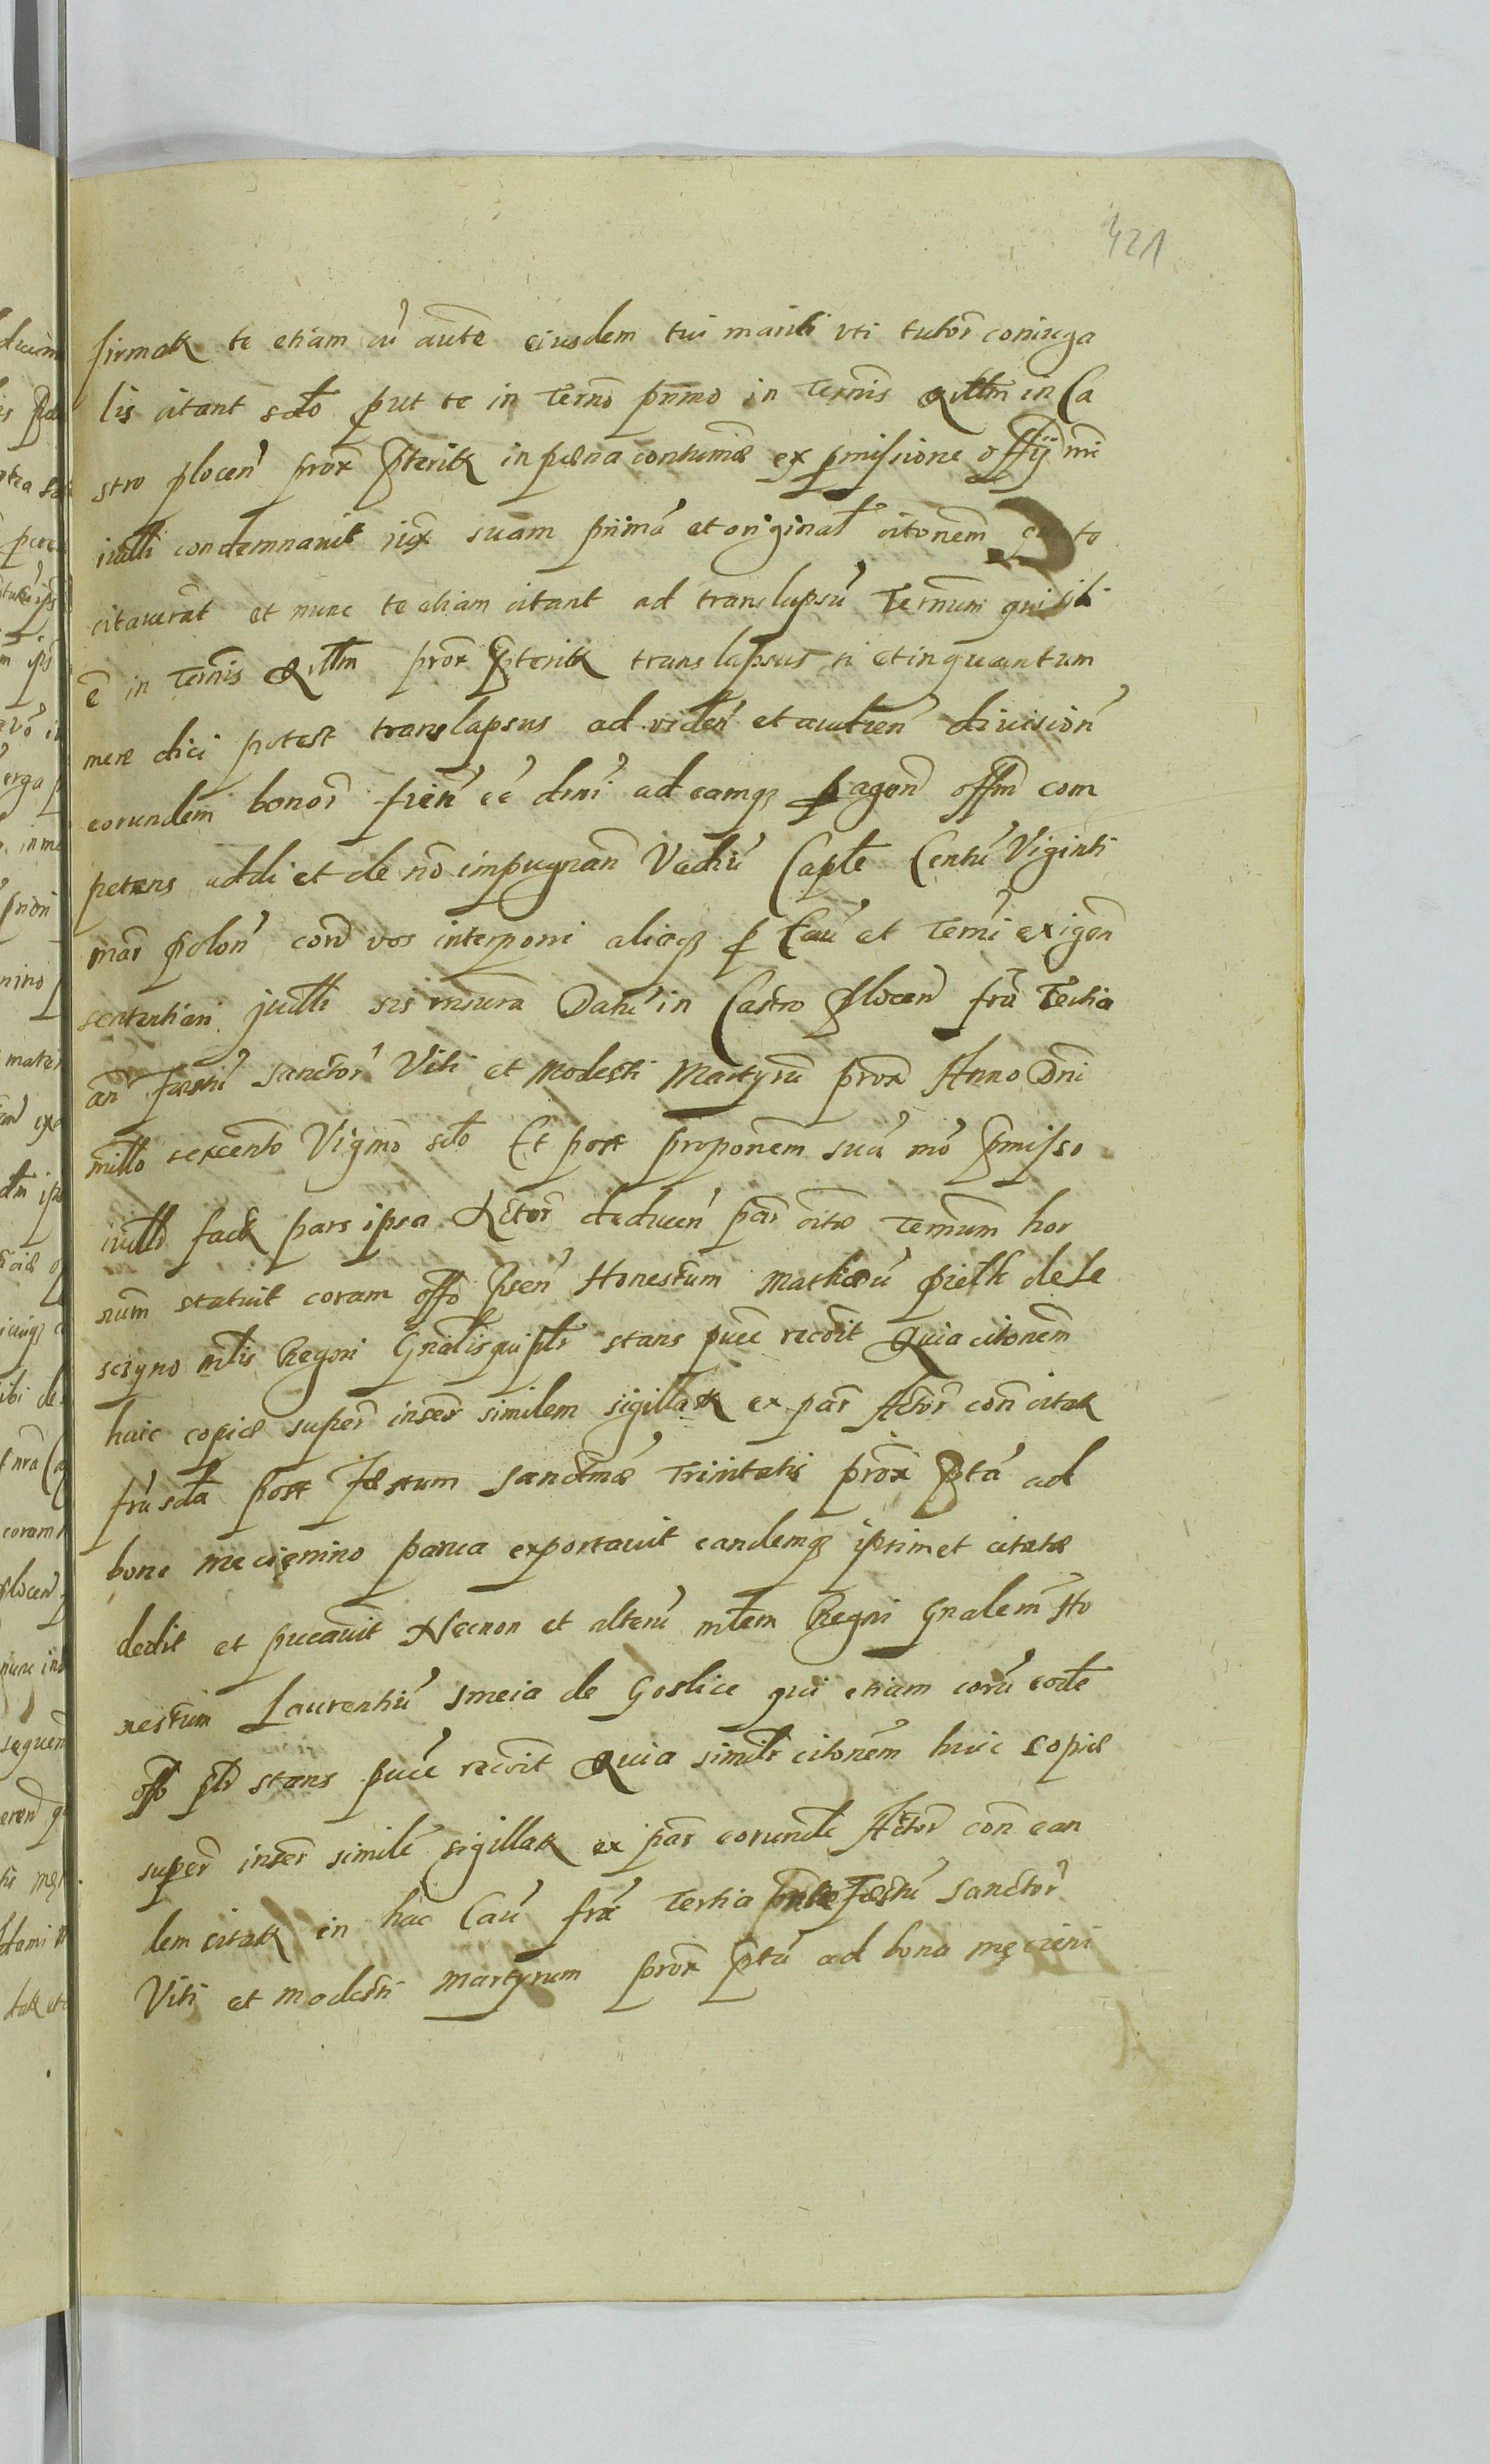 421
firmatt te etiam cu aute eiusdem tui mariti uti tutor coniuga
lis citant sdo put te in Termo primo in Termis Qllm in Ca
stro plocen prox pterit in pæna contumæ ex pmissione offy nri
iudlli condemnavit iux suam primã et original citonem q to
citaverãt et nunc te etiam citant ad translapsũ Terminum qui sit
ẽ in Termis Qllm prox pterit translapsus ti et inquantum
mere dici potest translapsus ad viden et audien division
eorundem bonor fien ee dmi ad eamq pagen offm com
petens addi et de nõ impugnan Vadiũ Caple Centũ Viginti
mar polon cord vos interponi aliaq p Caũ et Termi exigen
sententiari judlli sis mensura Datũ in Castro plocen fra Tertia
añ Festũ sanctor Viti et Modesti Martyrũ prox Anno Dni
millo sexcento Vigmo sdo Et post proponem suã mo pmisso
iudllr fact pars ipsa Actor deducen par citæ Terminum hor
num statuit coram offo psen Honestum Matheũ pielk de Le
scigno mtlis Regni Gnalis qui ptr stans puce recoit Quia citonem
huic copiæ super inser similem sigillatt ex par Actor con citat
fra sda post Festum sanctmæ Trinitatis prox ptã ad
bona mecignino parva exportavit eandemq ipsimet citatæ
dedit et puceavit Necnon et alterũ mtlem Regni Gnalem Ho
nestum Laurentiũ smeia de Goslice qui etiam corã eode
offo ptr stans puce recoit Quia simile citonem huic copiæ
super inser similẽ sigillatt ex par eorunde Actor con ean
dem citatt in hac Caũ fra Tertia ante Festũ sanctor
Viti et modesti martyrum prox ptã ad bona męcieni